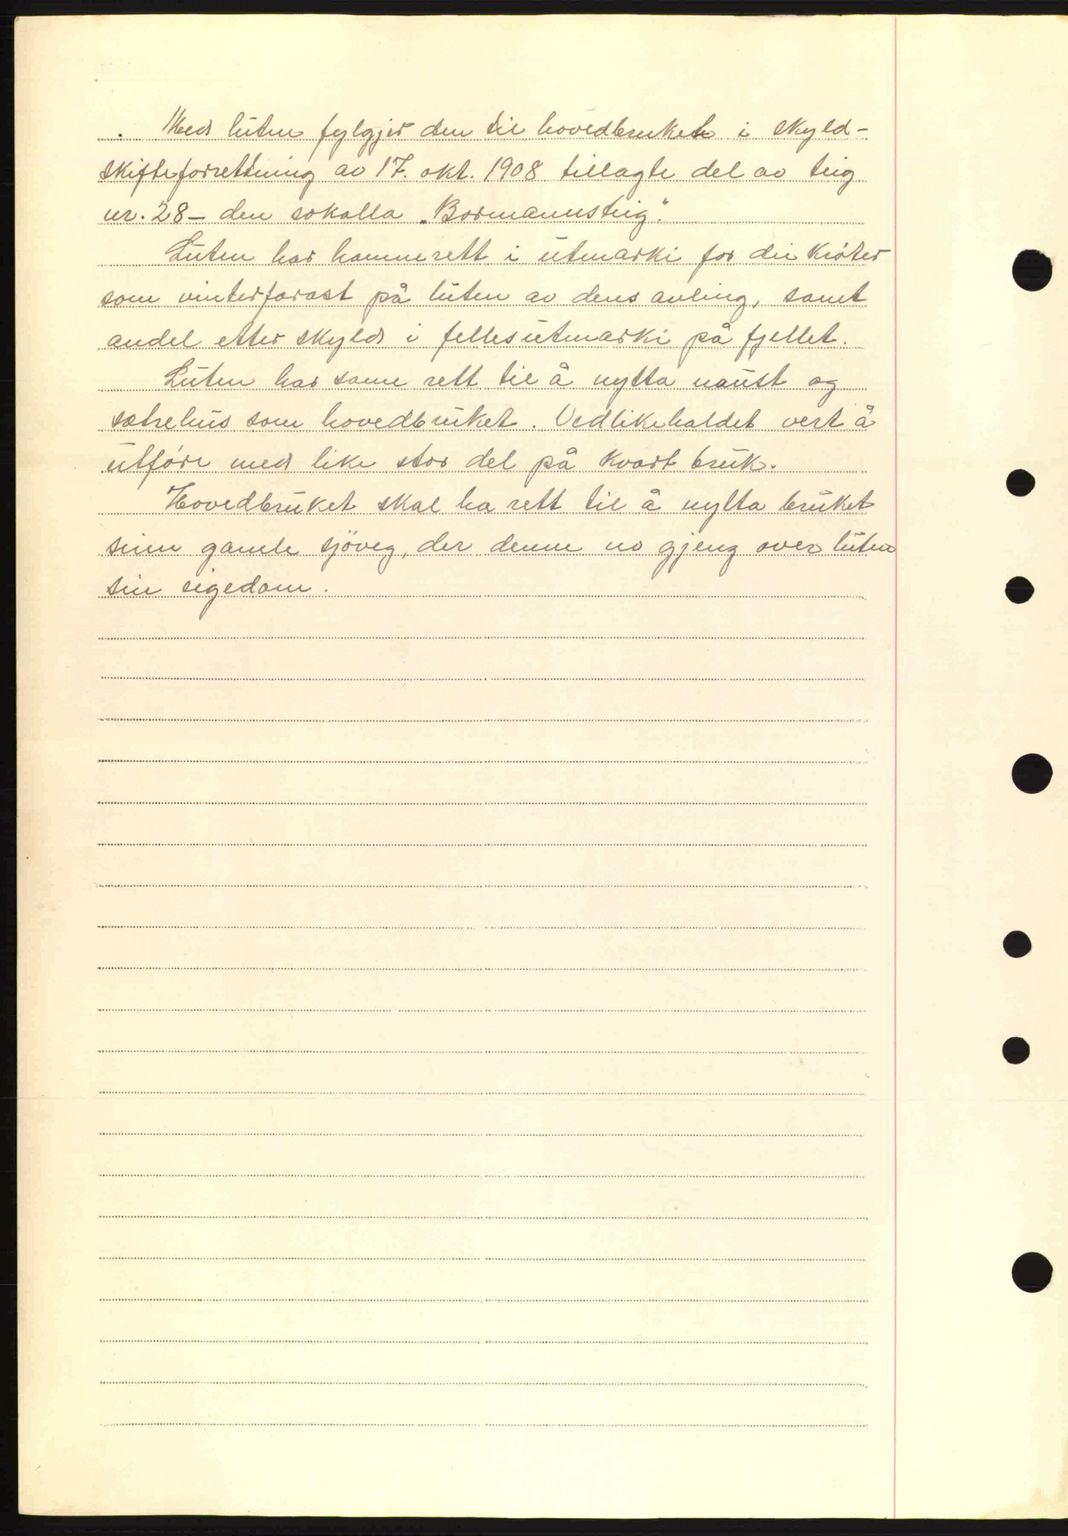 Med luten fylgjer den til hovedbruket i skyld-
skifteforretning av 17. okt. 1908 tillagte del av teig
nr. 28 – den sokalla „Bormannsteig".
Luten har hamnerett i utmarki for dei krøter
som vinterforast på luten av dens avling, samt
andel etter skyld i fellesutmarki på fjellet.
Luten har same rett til å nytta naust og
sætrehus som hovedbruket. Vedlikehaldet vert å
utføre med like stor del på kvart bruk.
Hovedbruket skal ha rett til å nytta bruket
sinn gamle sjöveg, der denne no gjeng over luten
sin eigedom.